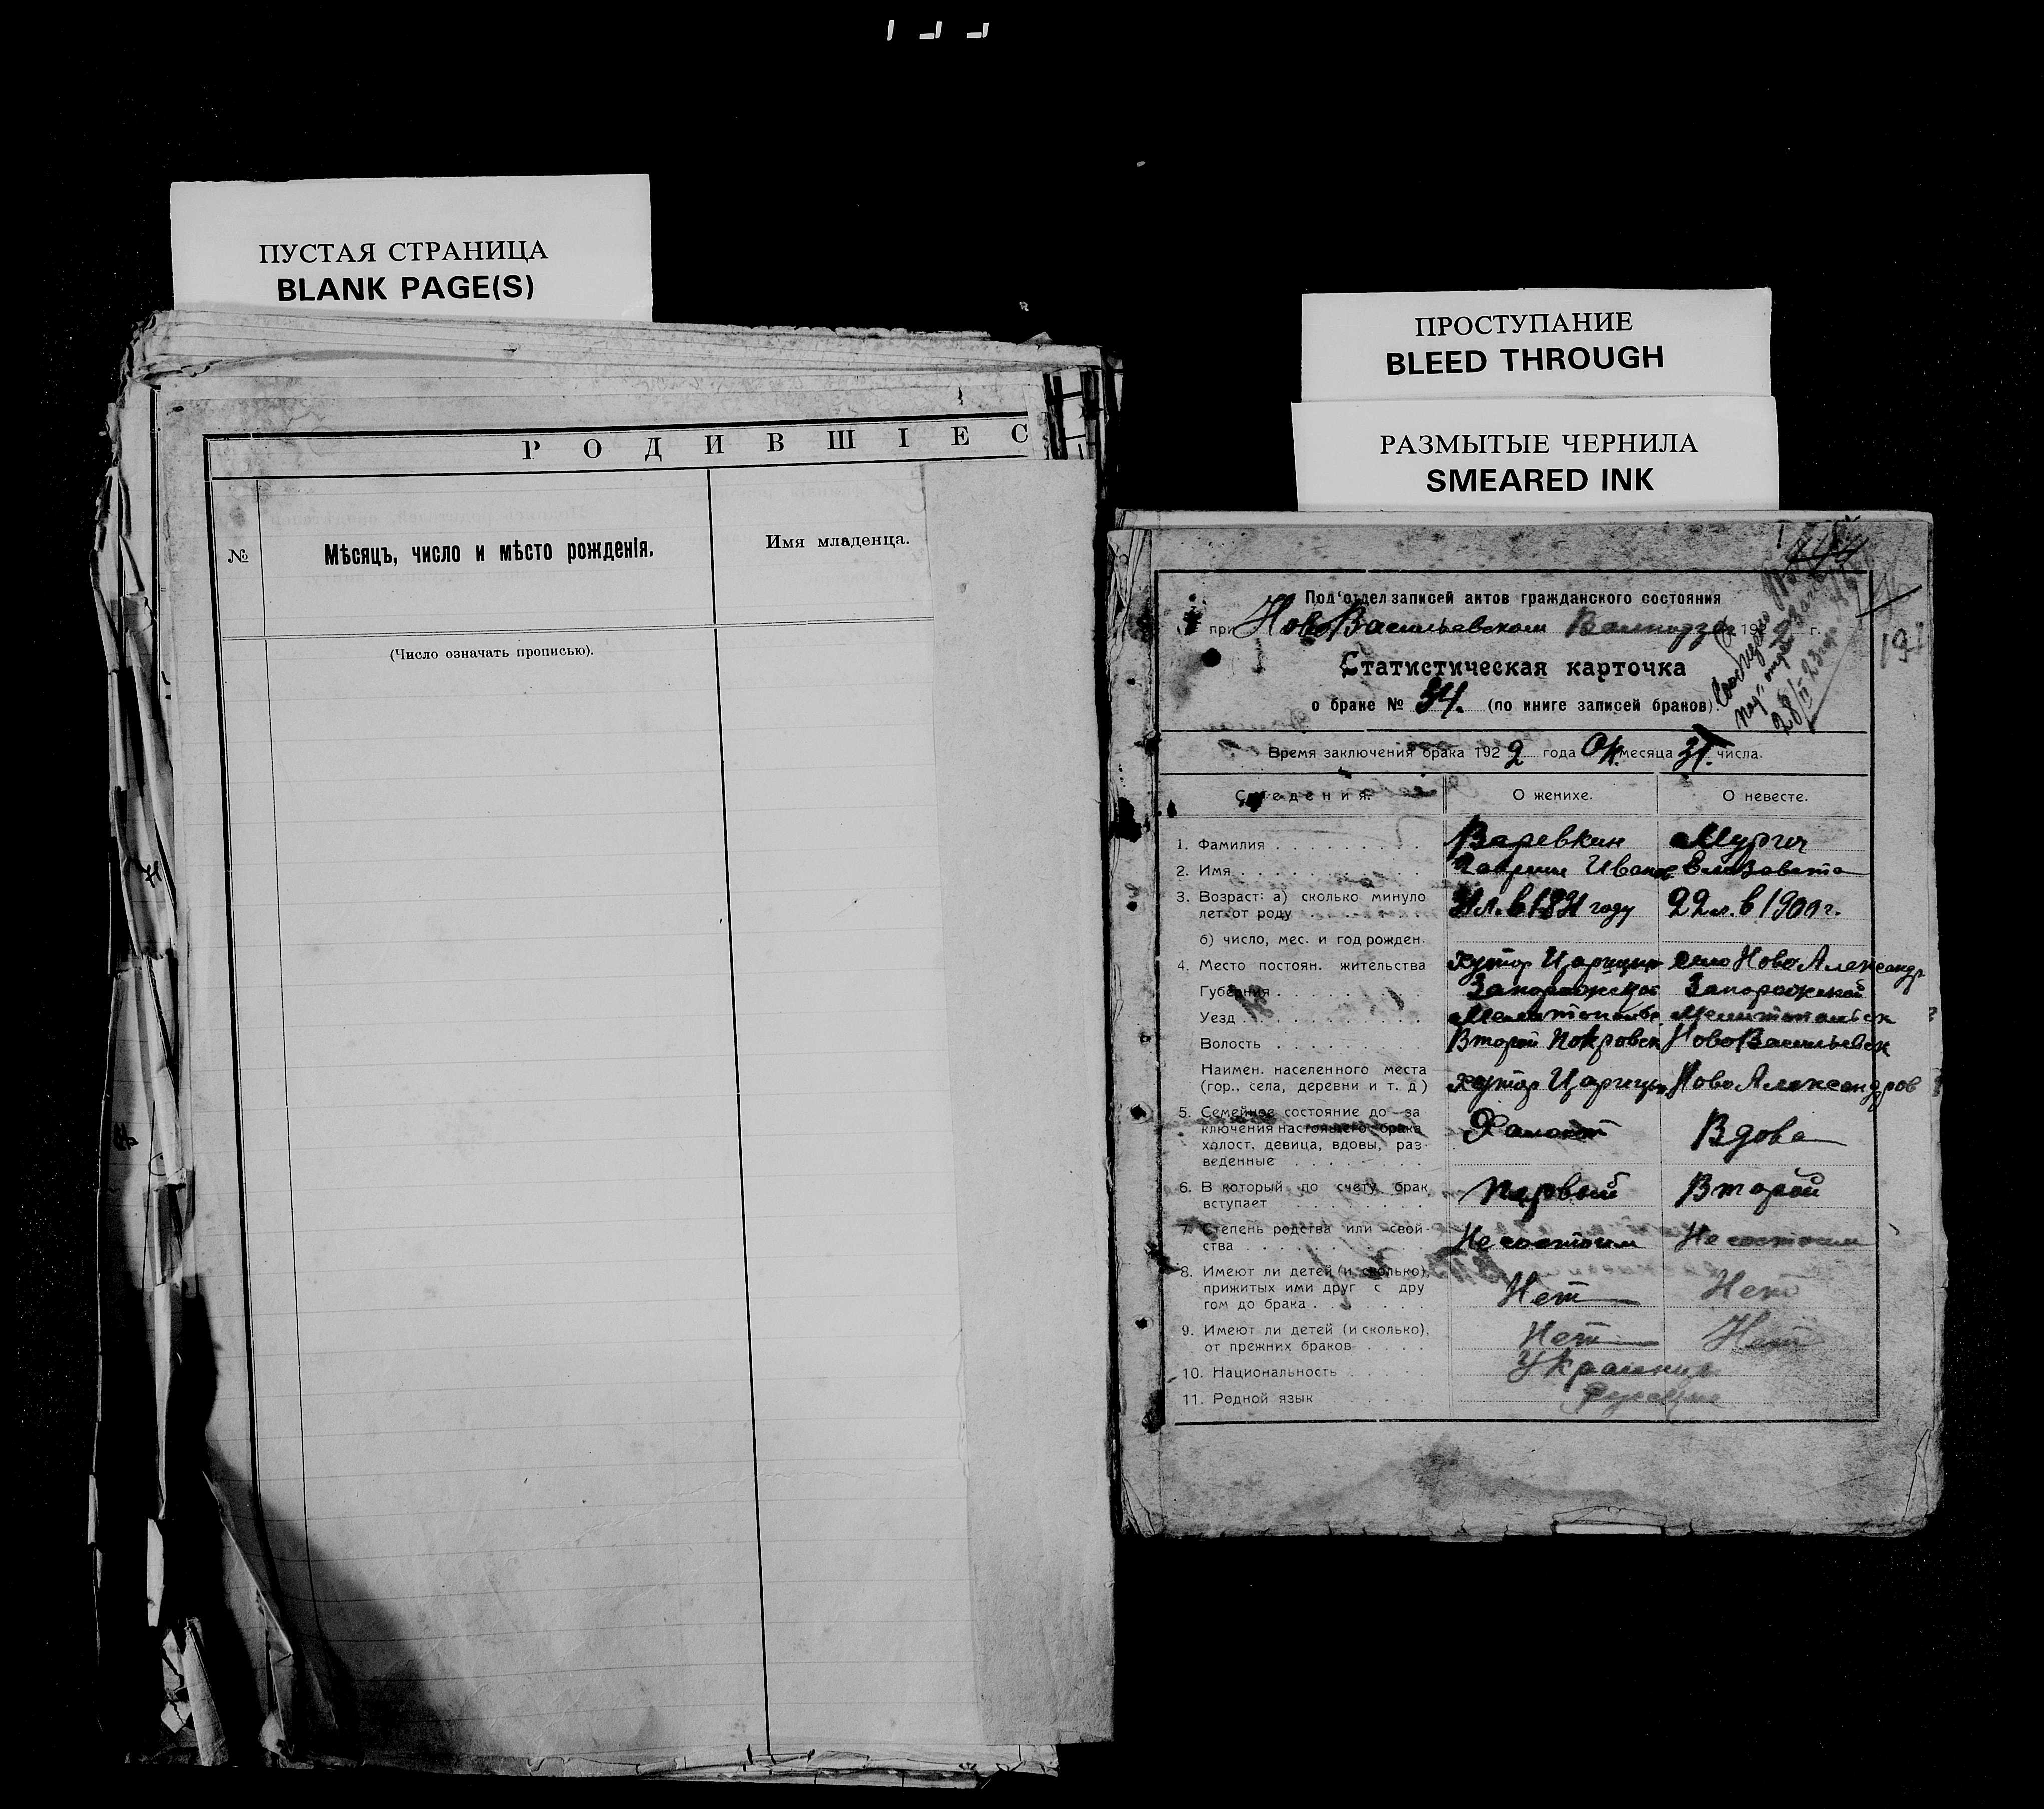 ПУСТАЯ СТРАНИЦА
BLANK PAGE(S)
РОДИВШІЕС
№
Мѣсяцъ, число и мѣсто рожденія.
Имя младенца.
(Число означать прописью).
ПРОСТУПАНИЕ
BLEED THROUGH
РАЗМЫТЫЕ ЧЕРНИЛА
SMEARED INK
Под'отдел записей актов гражданского состояния
при НовоВасильевском 192 г.
Статистическая карточка
о браке № 34. (по книге записей браков)
28/II 23
Время заключения брака 1922 года Ок. месяца 31. числа.
Сведения. О женихе. О невесте.
1. Фамилия Варевкин Мурич
2. Имя Гавриил Иванов Елизавета
3. Возраст: а) сколько минуло
лет от роду 31 л. в 1891 году 22 л. в 1900 г.
б) число, мес. и год рожден.
4. Место постоян. жительства Хутор Царицын село Ново Александр
Губерния Запорожской Запорожской
Уезд Мелитопольс. Мелитопольск
Волость Второй Покровск НовоВасильевск
Наимен. населенного места
(гор., села, деревни и т. д) Хутор Царицын Ново Александров
5. Семейное состояние до за
ключения настоящего брака
холост, девица, вдовы, раз- Холост Вдова
веденные
6. В который по счету брак
вступает Первый Второй
7. Степень родства или свой-
ства Не состоим Не состоим
8. Имеют ли детей (и сколько),
прижитых ими друг с дру
гом до брака Нет Нет
9. Имеют ли детей (и сколько),
от прежних браков Нет Нет
10. Национальность
11. Родной язык